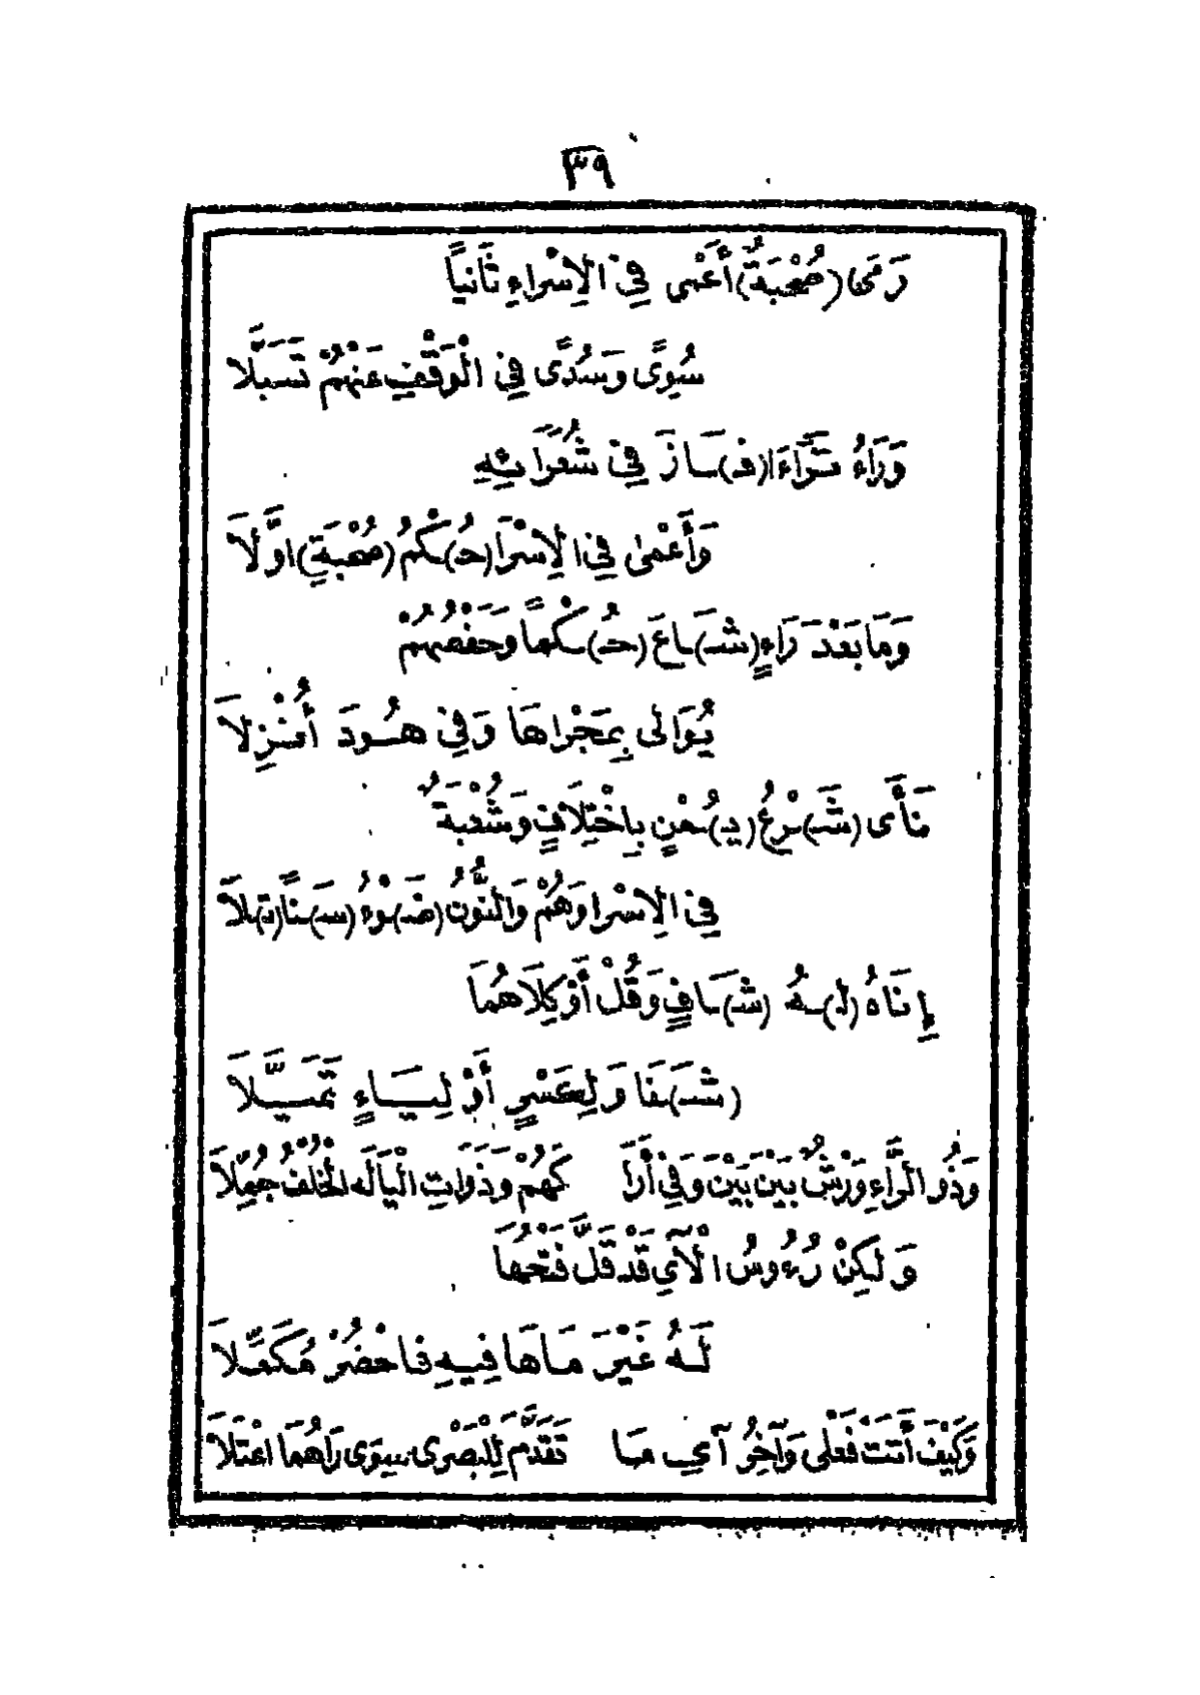 ٣٩
رَمَى (صُحْبَةٌ) أَعْمَى فِي الْإِسْرَاءِ ثَانِيًا
سُوًى وَسُدًى فِي الْوَقْفِ عَنْهُمْ تَسَبَّلَا
وَرَاءُ تَرَاءَا (فَـ)ـازَ فِي شُعَرَائِهِ
وَأَعْمَى فِي الْإِسْرَا (حُـ)ـكْمُ (صُحْبَةٍ) اوَّلَا
وَمَا بَعْدَ رَاءٍ (شَـ)ـاعَ (حُـ)ـكْمًا وَحَفْصُهُمْ
يُوَالِى بِمَجْرَاهَا وَفِي هُودَ أُنْزِلَا
نَأَى (شَـ)ـرْعُ (يُـ)ـمْنٍ بِاخْتِلَافٍ وَشُعْبَةٌ
فِي الْإِسْرَا وَهُمْ وَالنُّونُ (ضَـ)ـوْءُ (سَـ)ـنًا (تَـ)ـلَا
إِنَاهُ (لَـ)ـهُ (شَـ)ـافٍ وَقُلْ أَوْ كِلَاهُمَا
(شَـ)ـفَا وَلِكَسْرٍ أَوْ لِيَاءٍ تَمَيَّلَا
وَذُو الرَّاءِ وَرْشٌ بَيْنَ بَيْنَ وَفِي أَرَا كَهُمْ وَذَوَاتِ الْيَا لَهُ الْخُلْفُ جُمِّلَا
وَلَكِنْ رُءُوسُ الْآيِ قَدْ قَلَّ فَتْحُهَا
لَهُ غَيْرَ مَا هَا فِيهِ فَاحْضُرْ مُكَمَّلَا
وَكَيْفَ أَتَتْ فَعْلَى وَآخِرُ آيِ مَا تَقَدَّمَ لِلْبَصْرِى سِوَى رَاهُمَا اعْتَلَا